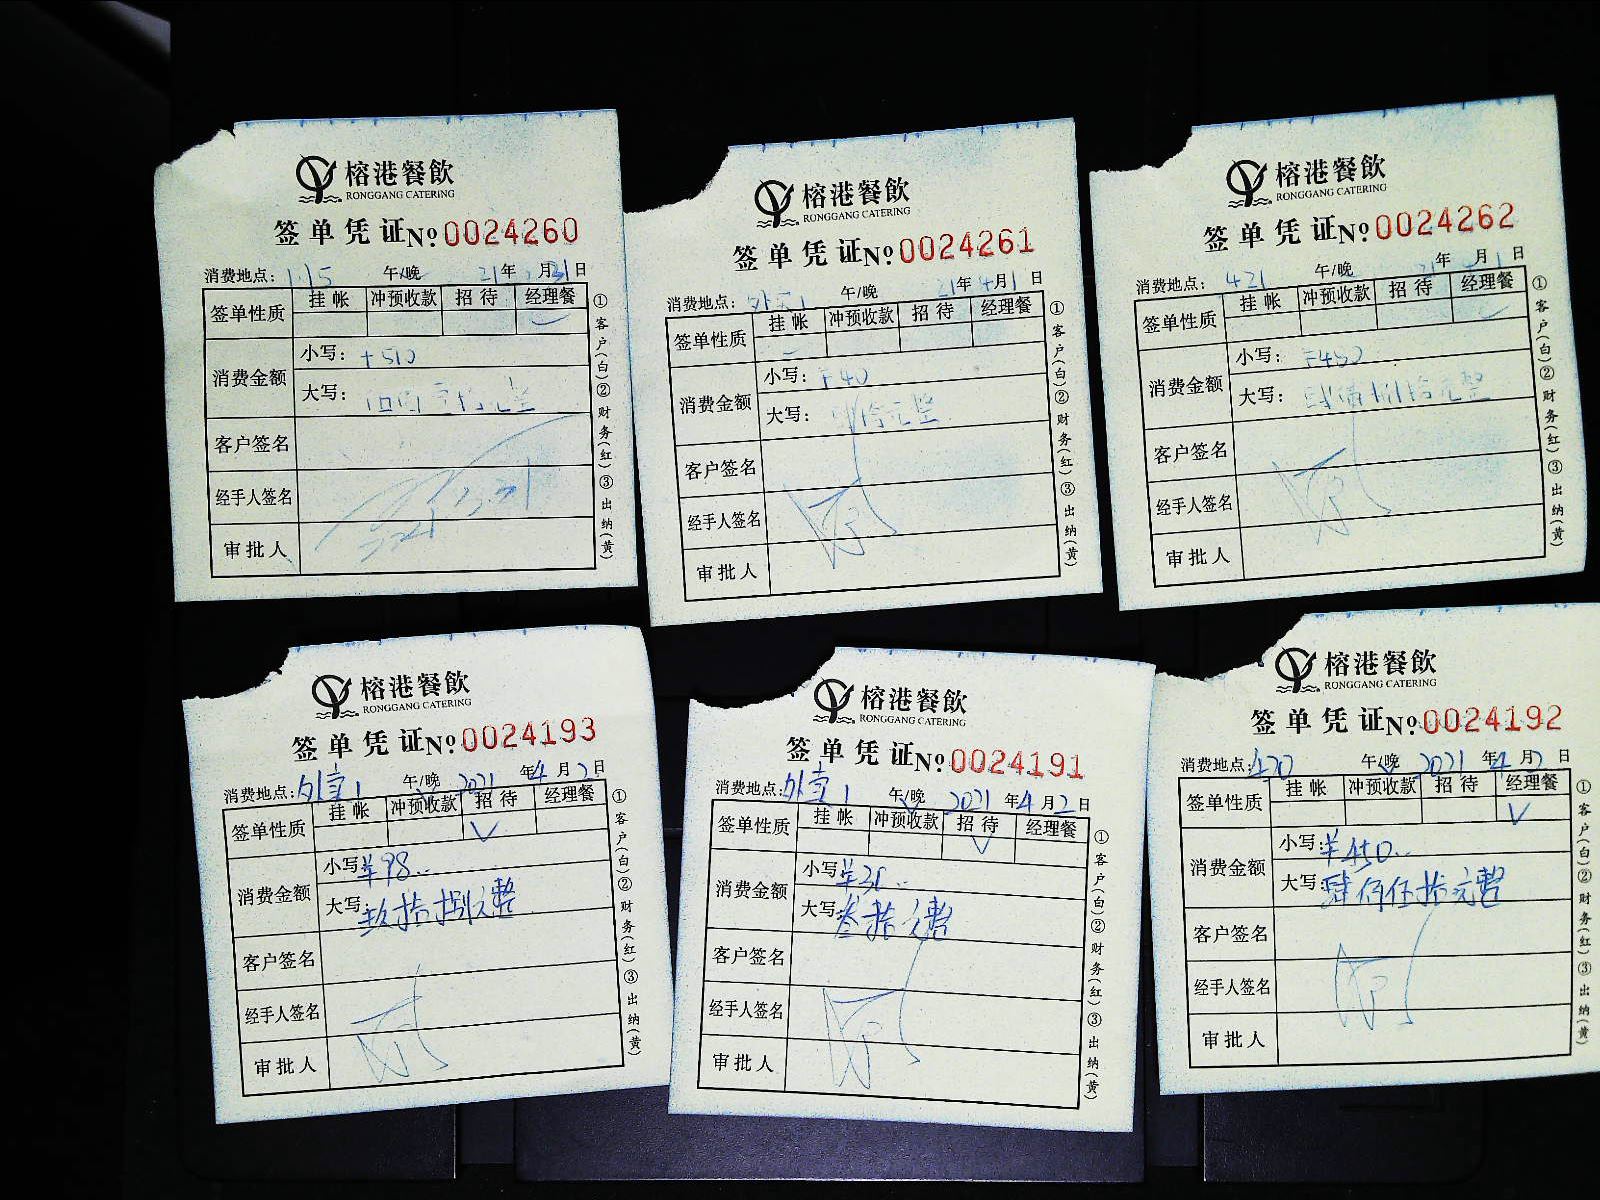 榕港餐飲
RONGGANG CATERING
签单凭证 No 0024260
消费地点： 午/晚 21年 月31日
签单性质 挂帐 冲预收款 招待 经理餐
消费金额 小写：
大写：
客户签名
经手人签名
审批人
①客户(白)②财务(红)③出纳(黄)
榕港餐飲
RONGGANG CATERING
签单凭证 No 0024261
消费地点： 午/晚 21年4月1日
签单性质 挂帐 冲预收款 招待 经理餐
消费金额 小写：¥40
大写：肆拾元整
客户签名
经手人签名
审批人
①客户(白)②财务(红)③出纳(黄)
榕港餐飲
RONGGANG CATERING
签单凭证 No 0024262
消费地点：421 午/晚 年 月1日
签单性质 挂帐 冲预收款 招待 经理餐
消费金额 小写：¥480
大写：肆佰捌拾元整
客户签名
经手人签名
审批人
①客户(白)②财务(红)③出纳(黄)
榕港餐飲
RONGGANG CATERING
签单凭证 No 0024193
消费地点：外卖1 午/晚 2021年4月2日
签单性质 挂帐 冲预收款 招待 经理餐
消费金额 小写：¥98
大写：玖拾捌元整
客户签名
经手人签名
审批人
①客户(白)②财务(红)③出纳(黄)
榕港餐飲
RONGGANG CATERING
签单凭证 No 0024191
消费地点：外卖1 午/晚 2021年4月2日
签单性质 挂帐 冲预收款 招待 经理餐
消费金额 小写：¥30
大写：叁拾元整
客户签名
经手人签名
审批人
①客户(白)②财务(红)③出纳(黄)
榕港餐飲
RONGGANG CATERING
签单凭证 No 0024192
消费地点：420 午/晚 2021年4月2日
签单性质 挂帐 冲预收款 招待 经理餐
消费金额 小写：¥450
大写：肆佰伍拾元整
客户签名
经手人签名
审批人
①客户(白)②财务(红)③出纳(黄)